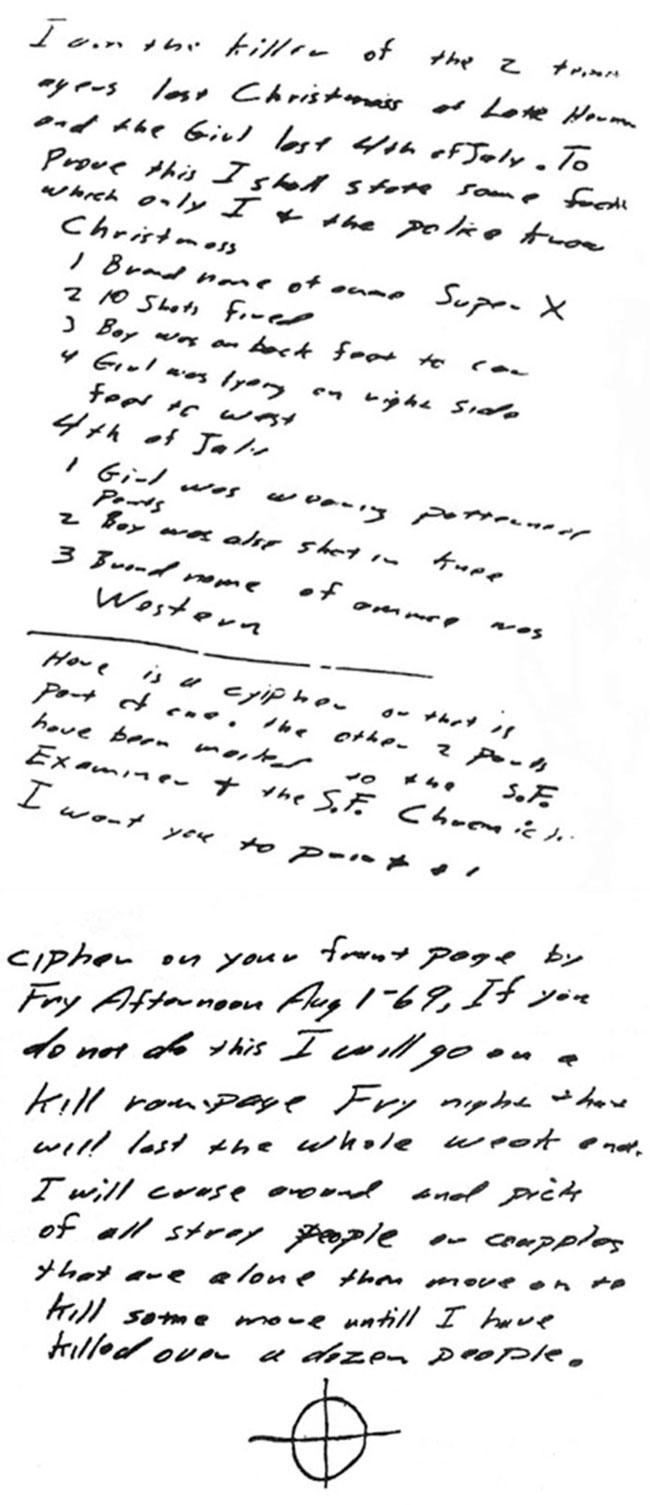 I am the killer of the 2 teen
agers last Christmass at Lake Herman
and the Girl last 4th of July. To
Prove this I shall state some facts
which only I + the police know
Christmass
1 Brand name of ammo Super X
2 10 Shots fired
3 Boy was on back feet to car
4 Girl was lyeng on right side
feet to west
4th of July
1 Girl was wearing patterned
Pants
2 Boy was also shot in knee
3 Brand name of ammo was
Western
Here is a cyipher or that is
part of one. the other 2 parts
have been mailed to the S.F.
Examiner + the S.F. Chronicle
I want you to print this
cipher on your front page by
Fry Afternoon Aug 1-69, If you
do not do this I will go on a
kill rampage Fry night that
will last the whole week end.
I will cruse around and pick
of all stray people or coupples
that are alone then move on to
kill some more untill I have
killed over a dozen people.